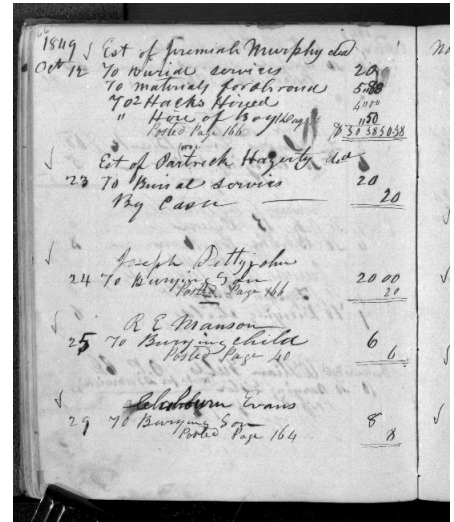 66
1849 Est of Jeremiah Murphy decd
Oct 12 To Burial services 20
To materials for Shroud 5"88
To 2 Hacks Hired 4"00
" Hire of Boy 1 Day "50
Posted Page 166 $30 38 30 38
Est of Partrick Hagerty decd
23 To Burial services 20
By Cash 20
Joseph Pettyjohn
24 To Burying Son 20 00
Posted Page 166 20
R E Manson
25 To Burying child 6
Posted Page 40 6
Evans
29 To Burying Son 8
Posted Page 164 8